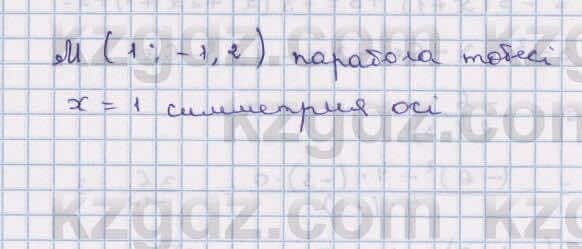 M (1; -1,2) парабола төбесі
x = 1 симметрия осі
kzgdz.com
kzgdz.com